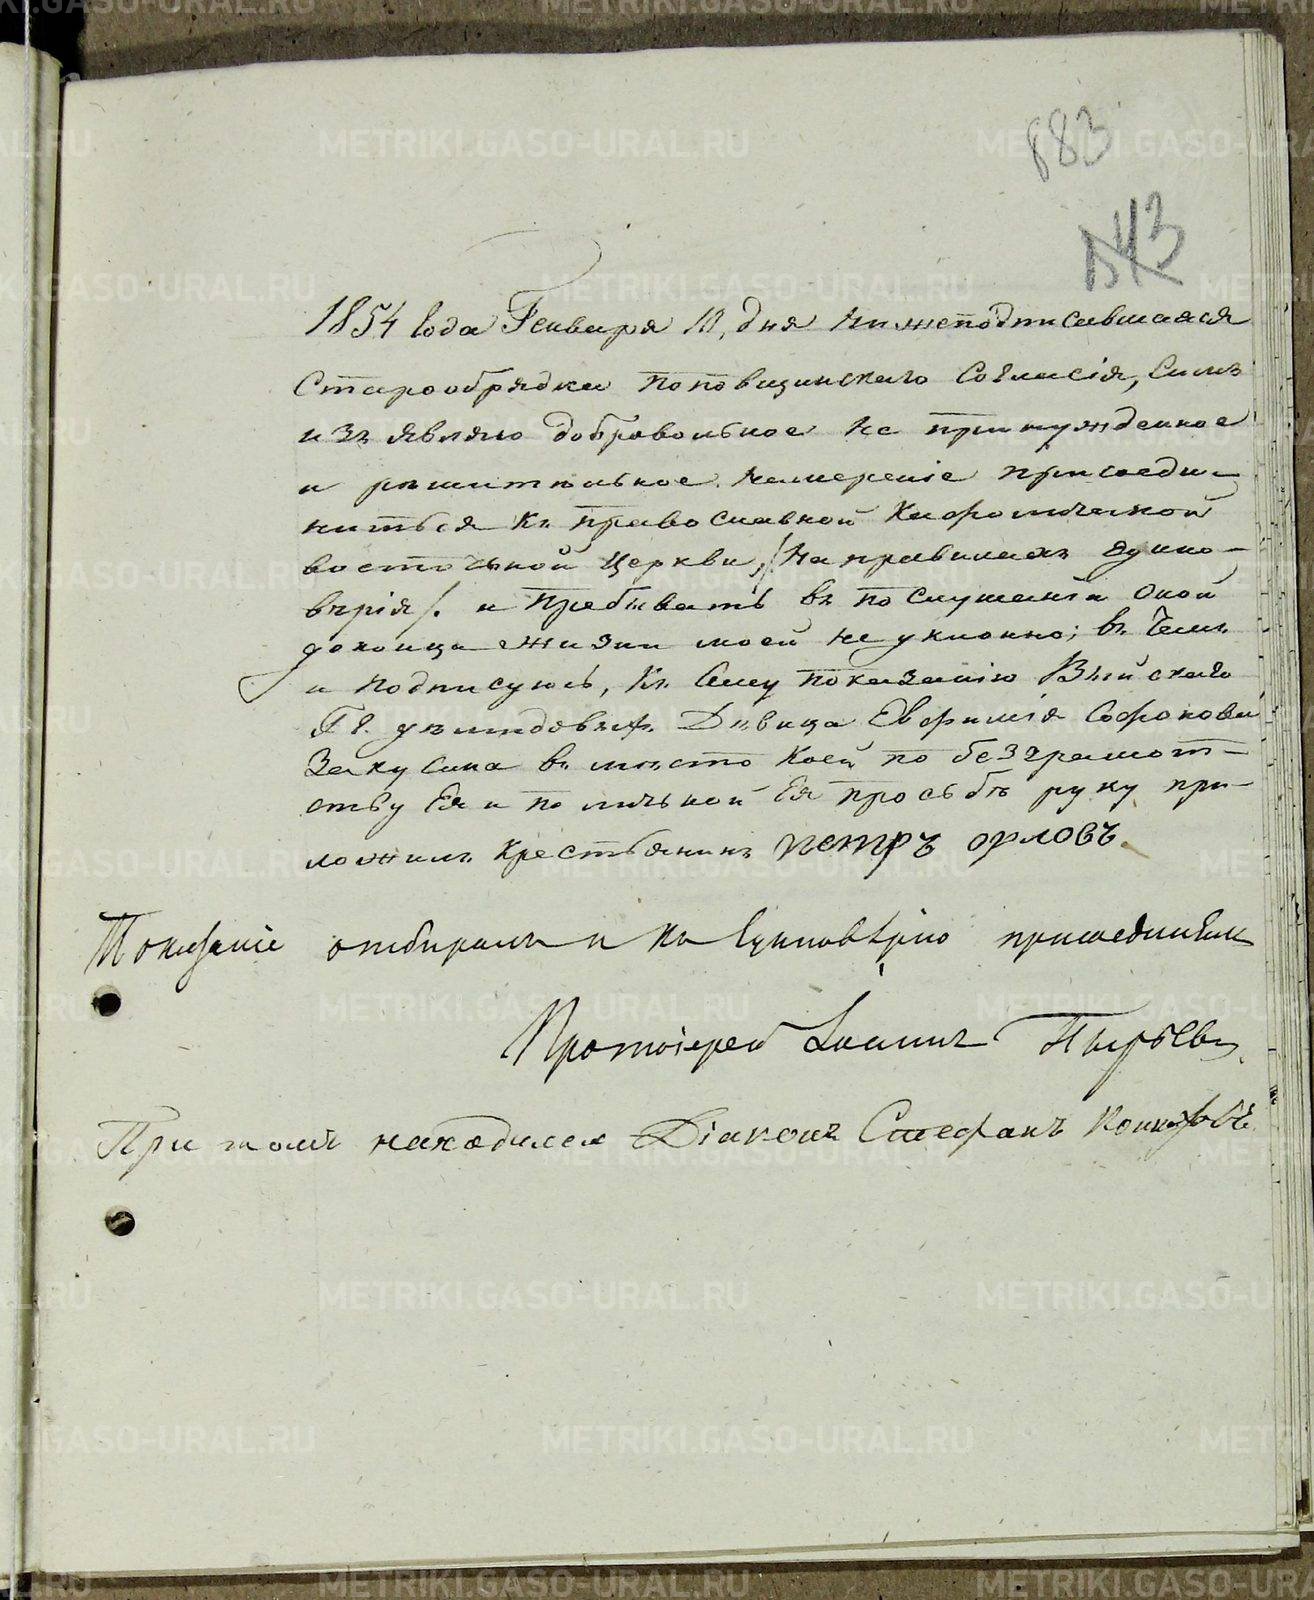 883
№3
1854 года Генваря 10, дня нижеподписавшаяся
Старообрядка поповщинскаго Согласія, Симъ
изъявляю добровольное не принужденное
и решительное намереніе присоеди-
ниться къ православной Кафолической
восточной Церкви, /. На правилахъ едино-
верія /. и пребывать въ послушаніи оной
доконца жизни моей не уклонно; въ чемъ
и подписуюсь, Къ Сему показанію Выйскаго
Гг. Демидовыхъ Девица Евфимія Софонова
Закусина въместо Коей по безграмот-
ству Ея и по личной Ея прозьбѣ руку при-
ложилъ крестьянинъ петръ орловъ.
Показаніе отбиралъ и къ Единовѣрію присоединилъ
Протоіерей Іоаннъ Пырьевъ.
При томъ находился Діаконъ Стефанъ